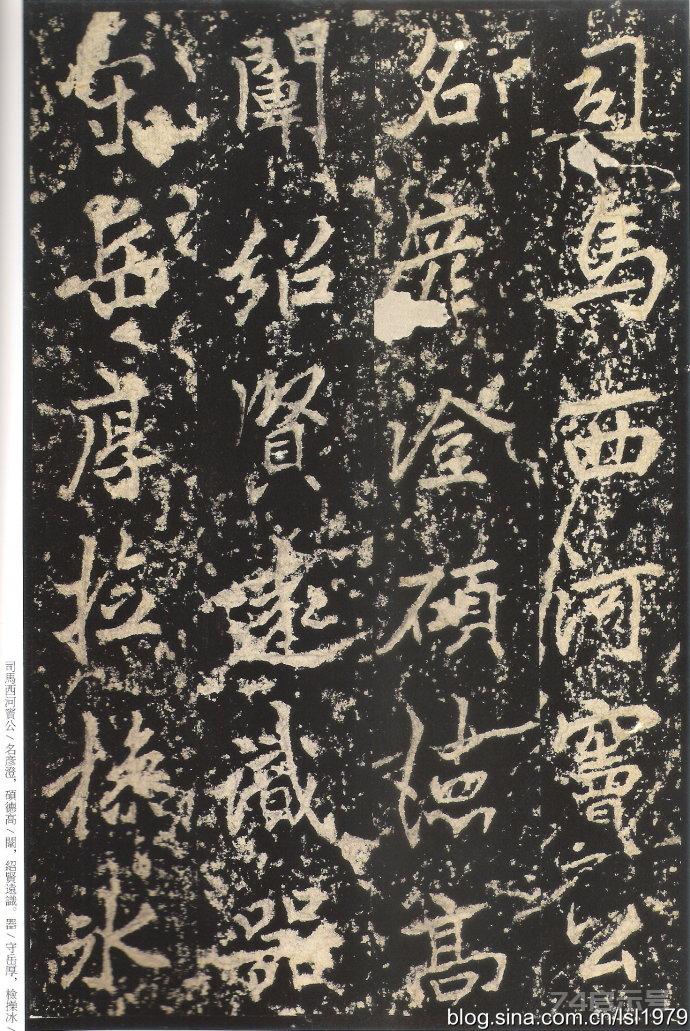 司馬西河竇公
名彦澄碩德高
闡紹賢遠識器
守岳厚撿操冰
司馬西河竇公/名彦澄，碩德高/闡，紹賢遠識。器/守岳厚，檢操冰/
blog.sina.com.cn/lsl1979